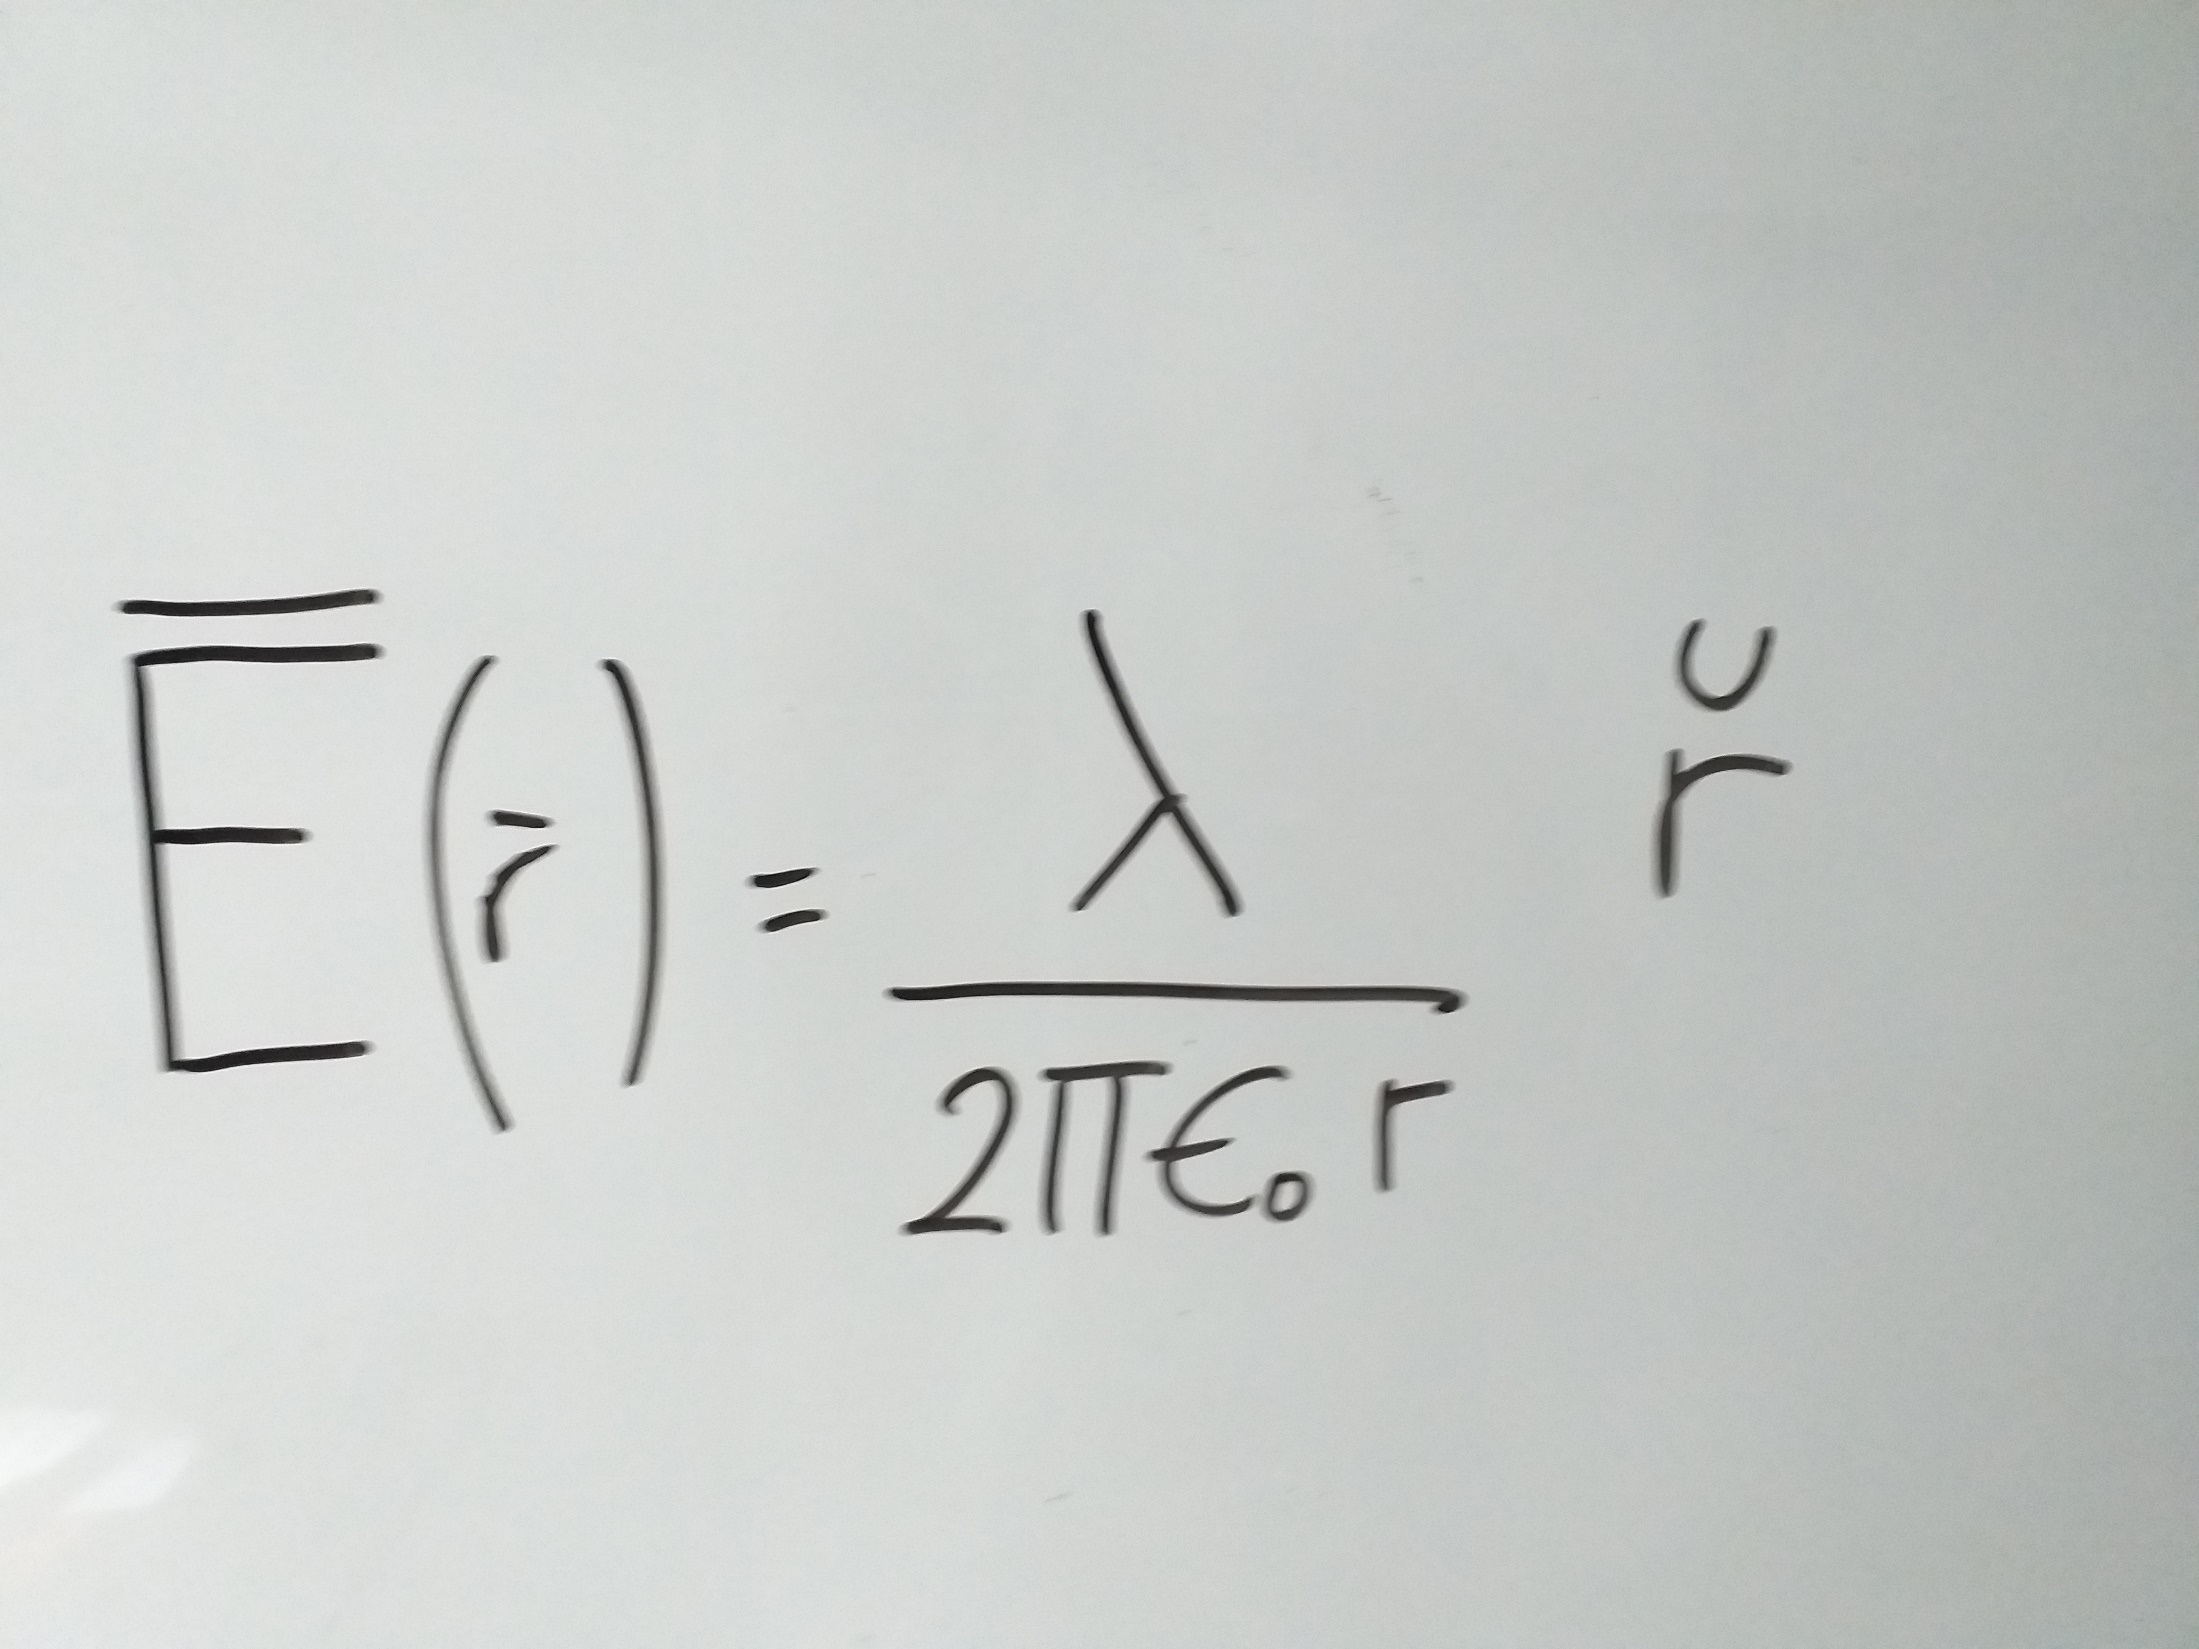 E̅(r̅) = λ / 2πϵ₀r r̆